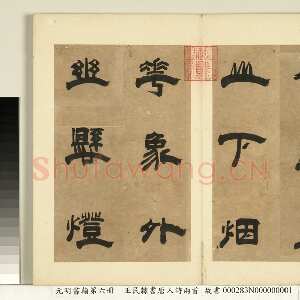 山下烟
花象外
幽懸燈
Shufawang.CN
元明書翰第六冊 王民隸書唐人詩兩首 故書000283N000000001